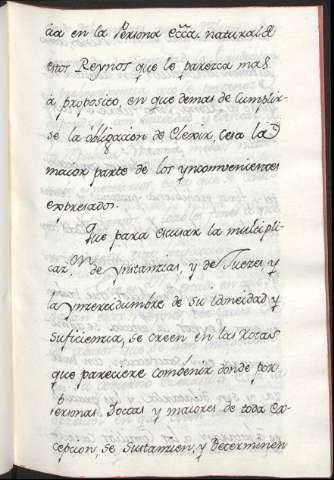 cia en la Persona ecca. natural de
estos Reynos que le parezca mas
à proposito, en que demas de Cumplir-
se la obligacion de Elexir, Cesa la
maior parte de los ynconvenientes
expresados.
Que para escusar la multipli-
cazon. de ynstanzias, y de Juezes y
la ynzertidumbre de su idoneidad y
suficiencia, se creen en las Rotas
que pareciere combenir donde por
Personas Doctas y maiores de toda Ex-
cepcion, se sustancien, y Determinen